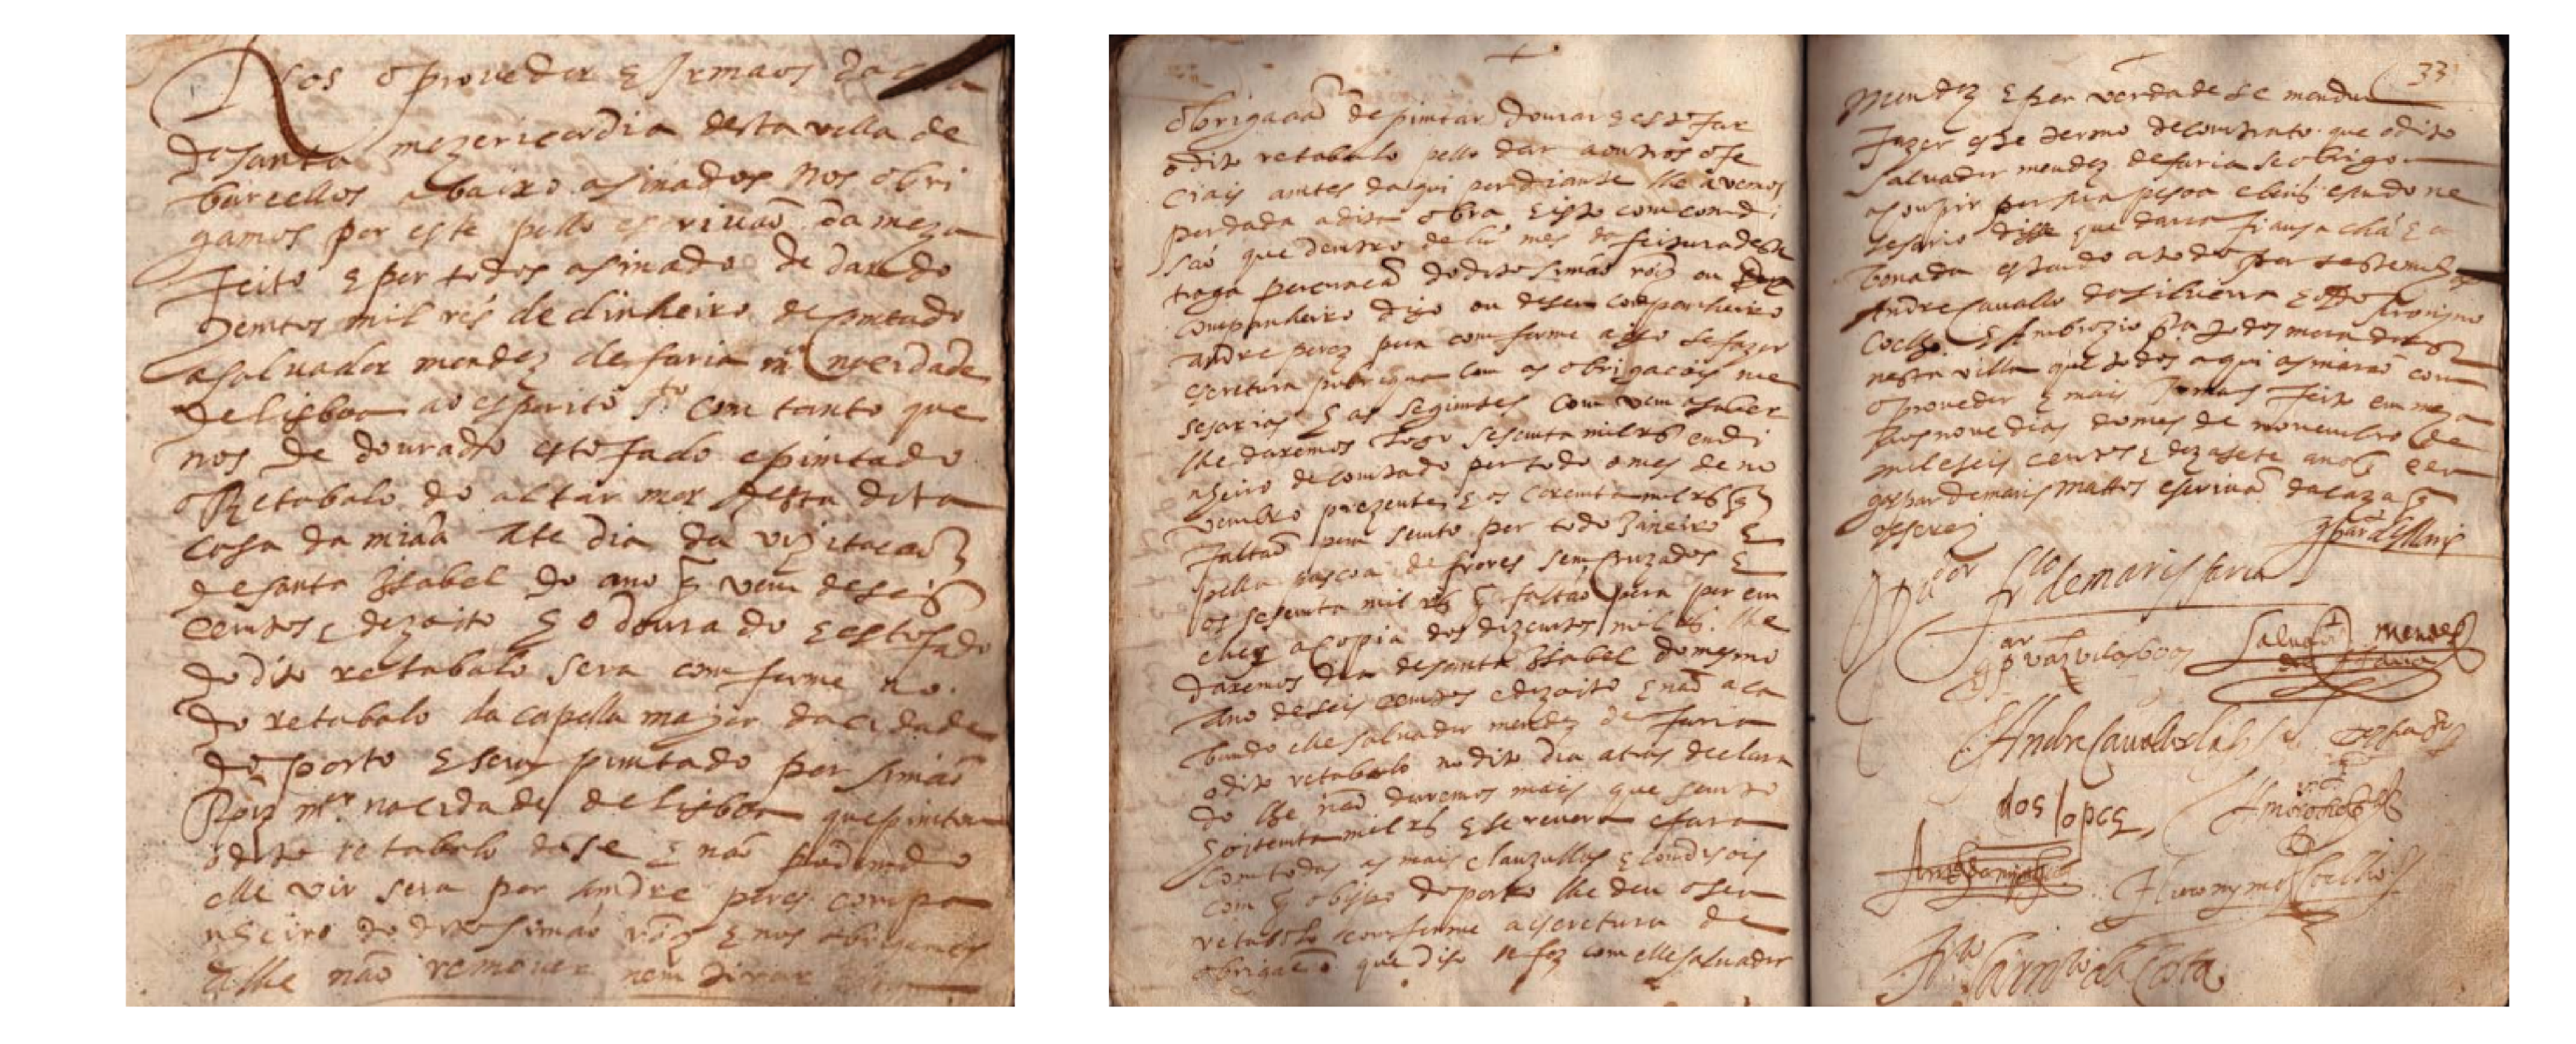 Nos o proveder e Irmaos da casa
da santa mezericordia desta villa de
barcellos abaixo asinados nos obri
gamos por este pello escrivaõ da meza
feito e per todos asinado de dar do
zemtos mil rēs de dinheiro de comtado
a saluador mendez de faria mor na cidade
de lisboa ao esperito sto com tanto que
nos de dourado estofado e pimtado
o Retabalo do altar mor desta dita
casa da miâa ate dia da vizitacaõ
de santa Izabel do ano q̃ vem de seis
centos e dezoito e o dourado e estofado
do dito retabalo sera comforme ao
do retabalo da capella major da cidade
do porto e sera pimtado por simaõ
Roiz mor na cidade de lisboa que pimtou
o dito retabalo da se e naõ podendo
elle vir sera por andre peres compa
nheiro do dito simaõ roiz e nos obrigamos
a lhe naõ remover nem tirar
obrigacaõ de pimtar dourar e estofar
o dito retabalo pello dar a outros ofe
ciais antes daqui per diante lhe avemos
per dada a dita obra e isto com comdi
saõ que dentro de hũ mes da feitura deste
traga percuracaõ do dito simaõ roiz ou
companheiro digo ou de seu companheiro
andre perez pera comforme a isso se fazer
escretura pubriqua com as obrigacois nee
sesarias e as segimtes comvem a saber
lhe daremos logo sesenta mil rs̃ em di
nheiro de comtado per todo o mes de no
vembro prezente e os coremta mil rs̃ q̃
faltaõ pera sento per todo Janeiro e
pella pascoa de frores sem cruzados e
os sesemta mil rs̃ q̃ faltaõ pera per em
cher a copia dos dozentos mil rs̃ lhe
daremos dia de santa Izabel do mesmo
ano de seis centos e dezoito e naõ aca
bando elle saluador mendez de faria
o dito retabalo no dito dia atras declara
do lhe naõ daremos mais que sento
e oitenta mil rs̃ e se revera e fara
com todas as mais clauzullas e condisois
com q̃ o bispo do porto lhe deu o seu
retabolo comforme a escretura de
obrigacaõ que diso se fez com elle saluador
33
mendez e per verdade se mandou
fazer este termo de comtrato que o dito
saluador mendez de faria se obrigou
a comprir per sua pesoa e bēis e sendo ne
sesario disse que daria fiansa chã e a
bonada estando a todo per testemunhas
Andre Cavallo da silveira e Jeronimo
Coelho e Ambrozio pra todos moradores
nesta villa que todos aqui asinaraõ com
o proveder e mais Irmaos feito em meza
aos nove dias do mes de novembro de
mil e seis centos e dezasete anos e eu
gaspar de maris mattos escrivaõ da caza q̃
o escrevi
gpar de Maris
Pdor frco de maris faria
gpar vaz vilasboas
Saluador mendes
de faria
Andre Cavallo
dos lopez
Hieronymo Coelho
da Costa